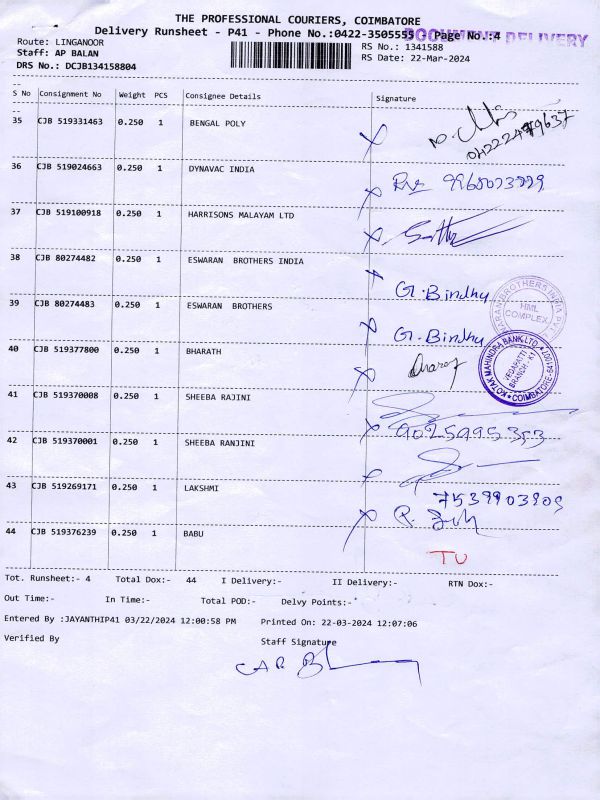 THE PROFESSIONAL COURIERS, COIMBATORE
Delivery Runsheet - P41 - Phone No.:0422-3505555 Page No.:4
DOCUMENT DELIVERY
Route: LINGANOOR
RS No.: 1341588
Staff: AP BALAN
RS Date: 22-Mar-2024
DRS No.: DCJB134158804
S No Consignment No Weight PCS Consignee Details Signature
35 CJB 519331463 0.250 1 BENGAL POLY
36 CJB 519024663 0.250 1 DYNAVAC INDIA
37 CJB 519100918 0.250 1 HARRISONS MALAYAM LTD
38 CJB 80274482 0.250 1 ESWARAN BROTHERS INDIA
G. Bindhu
39 CJB 80274483 0.250 1 ESWARAN BROTHERS
G. Bindhu
HML COMPLEX
40 CJB 519377800 0.250 1 BHARATH
KOTAK MAHINDRA BANK LTD.
41 CJB 519370008 0.250 1 SHEEBA RAJINI
42 CJB 519370001 0.250 1 SHEEBA RANJINI
43 CJB 519269171 0.250 1 LAKSHMI
7539903909
44 CJB 519376239 0.250 1 BABU
TU
Tot. Runsheet:- 4 Total Dox:- 44 I Delivery:- II Delivery:- RTN Dox:-
Out Time:- In Time:- Total POD:- Delvy Points:-
Entered By :JAYANTHIP41 03/22/2024 12:00:58 PM Printed On: 22-03-2024 12:07:06
Verified By Staff Signature